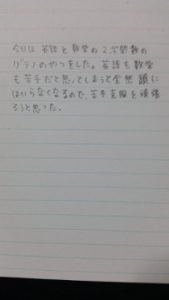 今日は英語と数学の2次関数の
グラフのやつをした。英語も数学
も苦手だと思ってしまうと全然頭に
はいらなくなるので、苦手克服を頑張
ろうと思った。